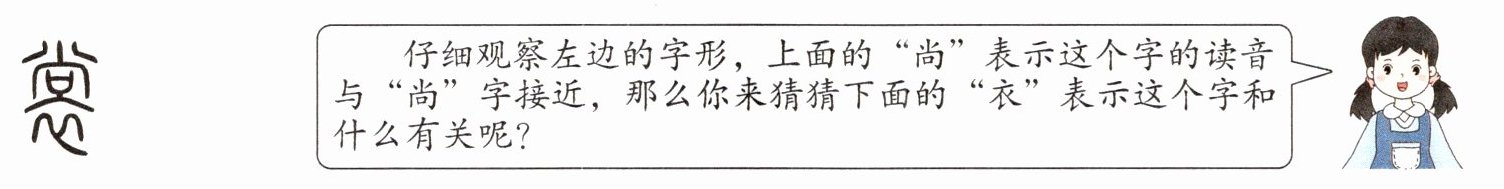 裳
仔细观察左边的字形，上面的“尚”表示这个字的读音
与“尚”字接近，那么你来猜猜下面的“衣”表示这个字和
什么有关呢？